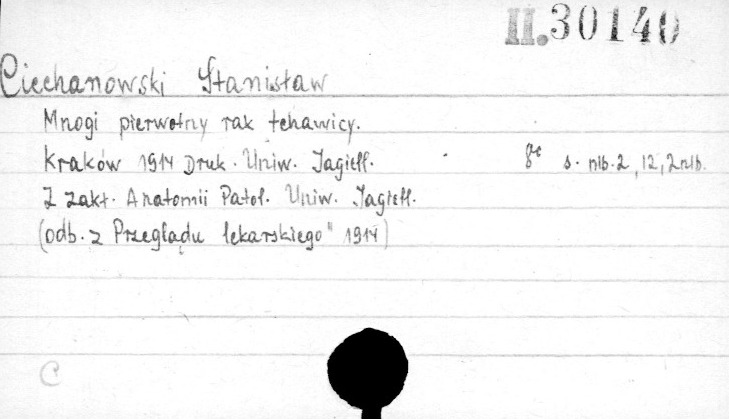 II.30140
Ciechanowski Stanisław
Mnogi pierwotny rak tchawicy.
Kraków 1914 Druk. Uniw. Jagiell. 8° s. nlb. 2, 12, 2 nlb.
Z zakł. Anatomii Patol. Uniw. Jagiell.
(odb. z Przeglądu lekarskiego" 1914)
C